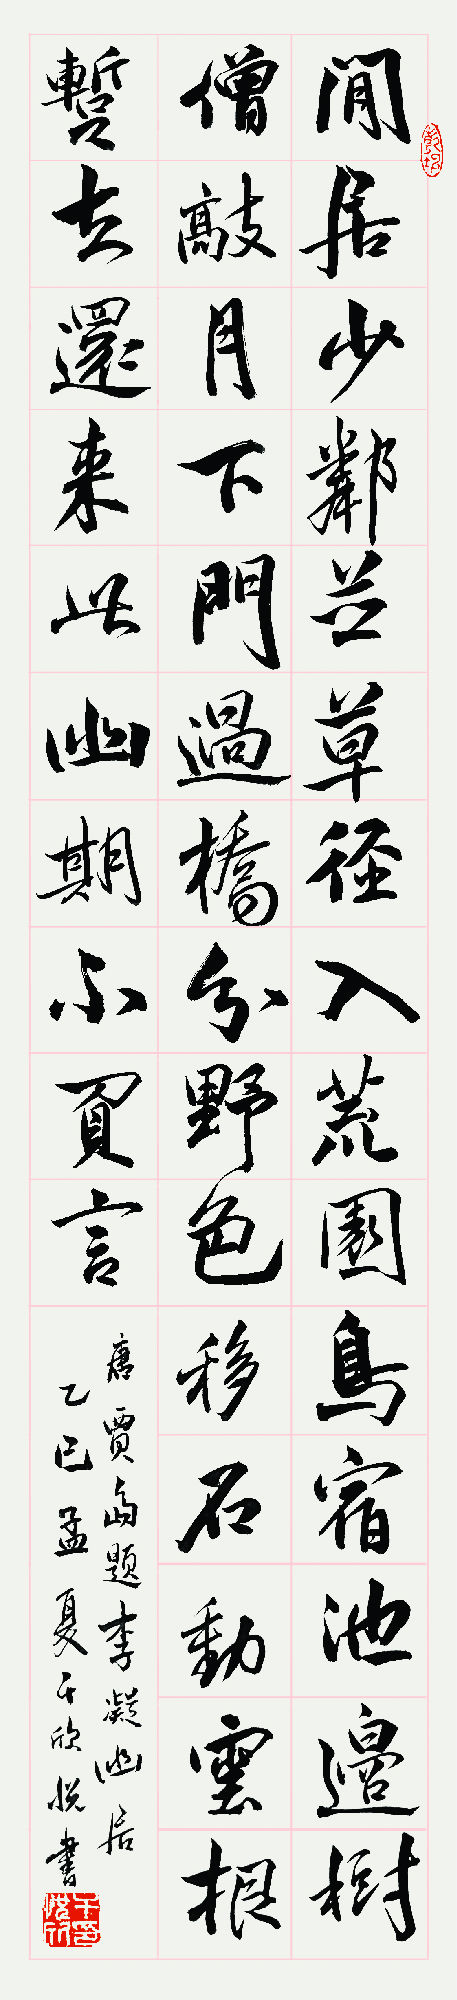 閒居少鄰並草徑入荒園鳥宿池邊樹
僧敲月下門過橋分野色移石動雲根
暫去還來此幽期不負言
唐賈島題李凝幽居
乙巳孟夏于欣悅書